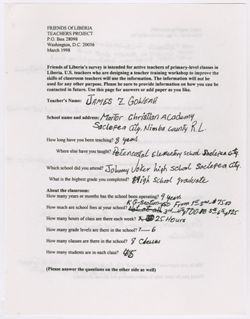 FRIENDS OF LIBERIA
TEACHERS PROJECT
P.O. Box 28098
Washington, D.C. 20038
March 1998
Friends of Liberia's survey is intended for active teachers of primary-level classes in
Liberia. U.S. teachers who are designing a teacher training workshop to improve the
skills of classroom teachers will use the information. The information will not be
used for any other purpose. Please be sure to provide information on how you can be
contacted in future. Use this page for answers or add pages to it.
Teacher's Name: JAMES Z
School name and address: Christian Academy
Saclepea City, Nimba County R.L.
How long have you been teaching? 8 years
Where else have you taught? elementary school Saclepea
Which school did you attend? Johnny Voker high school Saclepea City.
What is the highest grade you completed? High school graduate
About the classroom:
How many years or months has the school been operating? 9 years
How much are school fees at your school? From 1st
How many hours of class are there each week? 25 Hours
How many grade levels are there in the school? 6
How many classes are there in the school? 8 Classes
How many students are in each class? 45
(Please answer the questions on the other side as well)